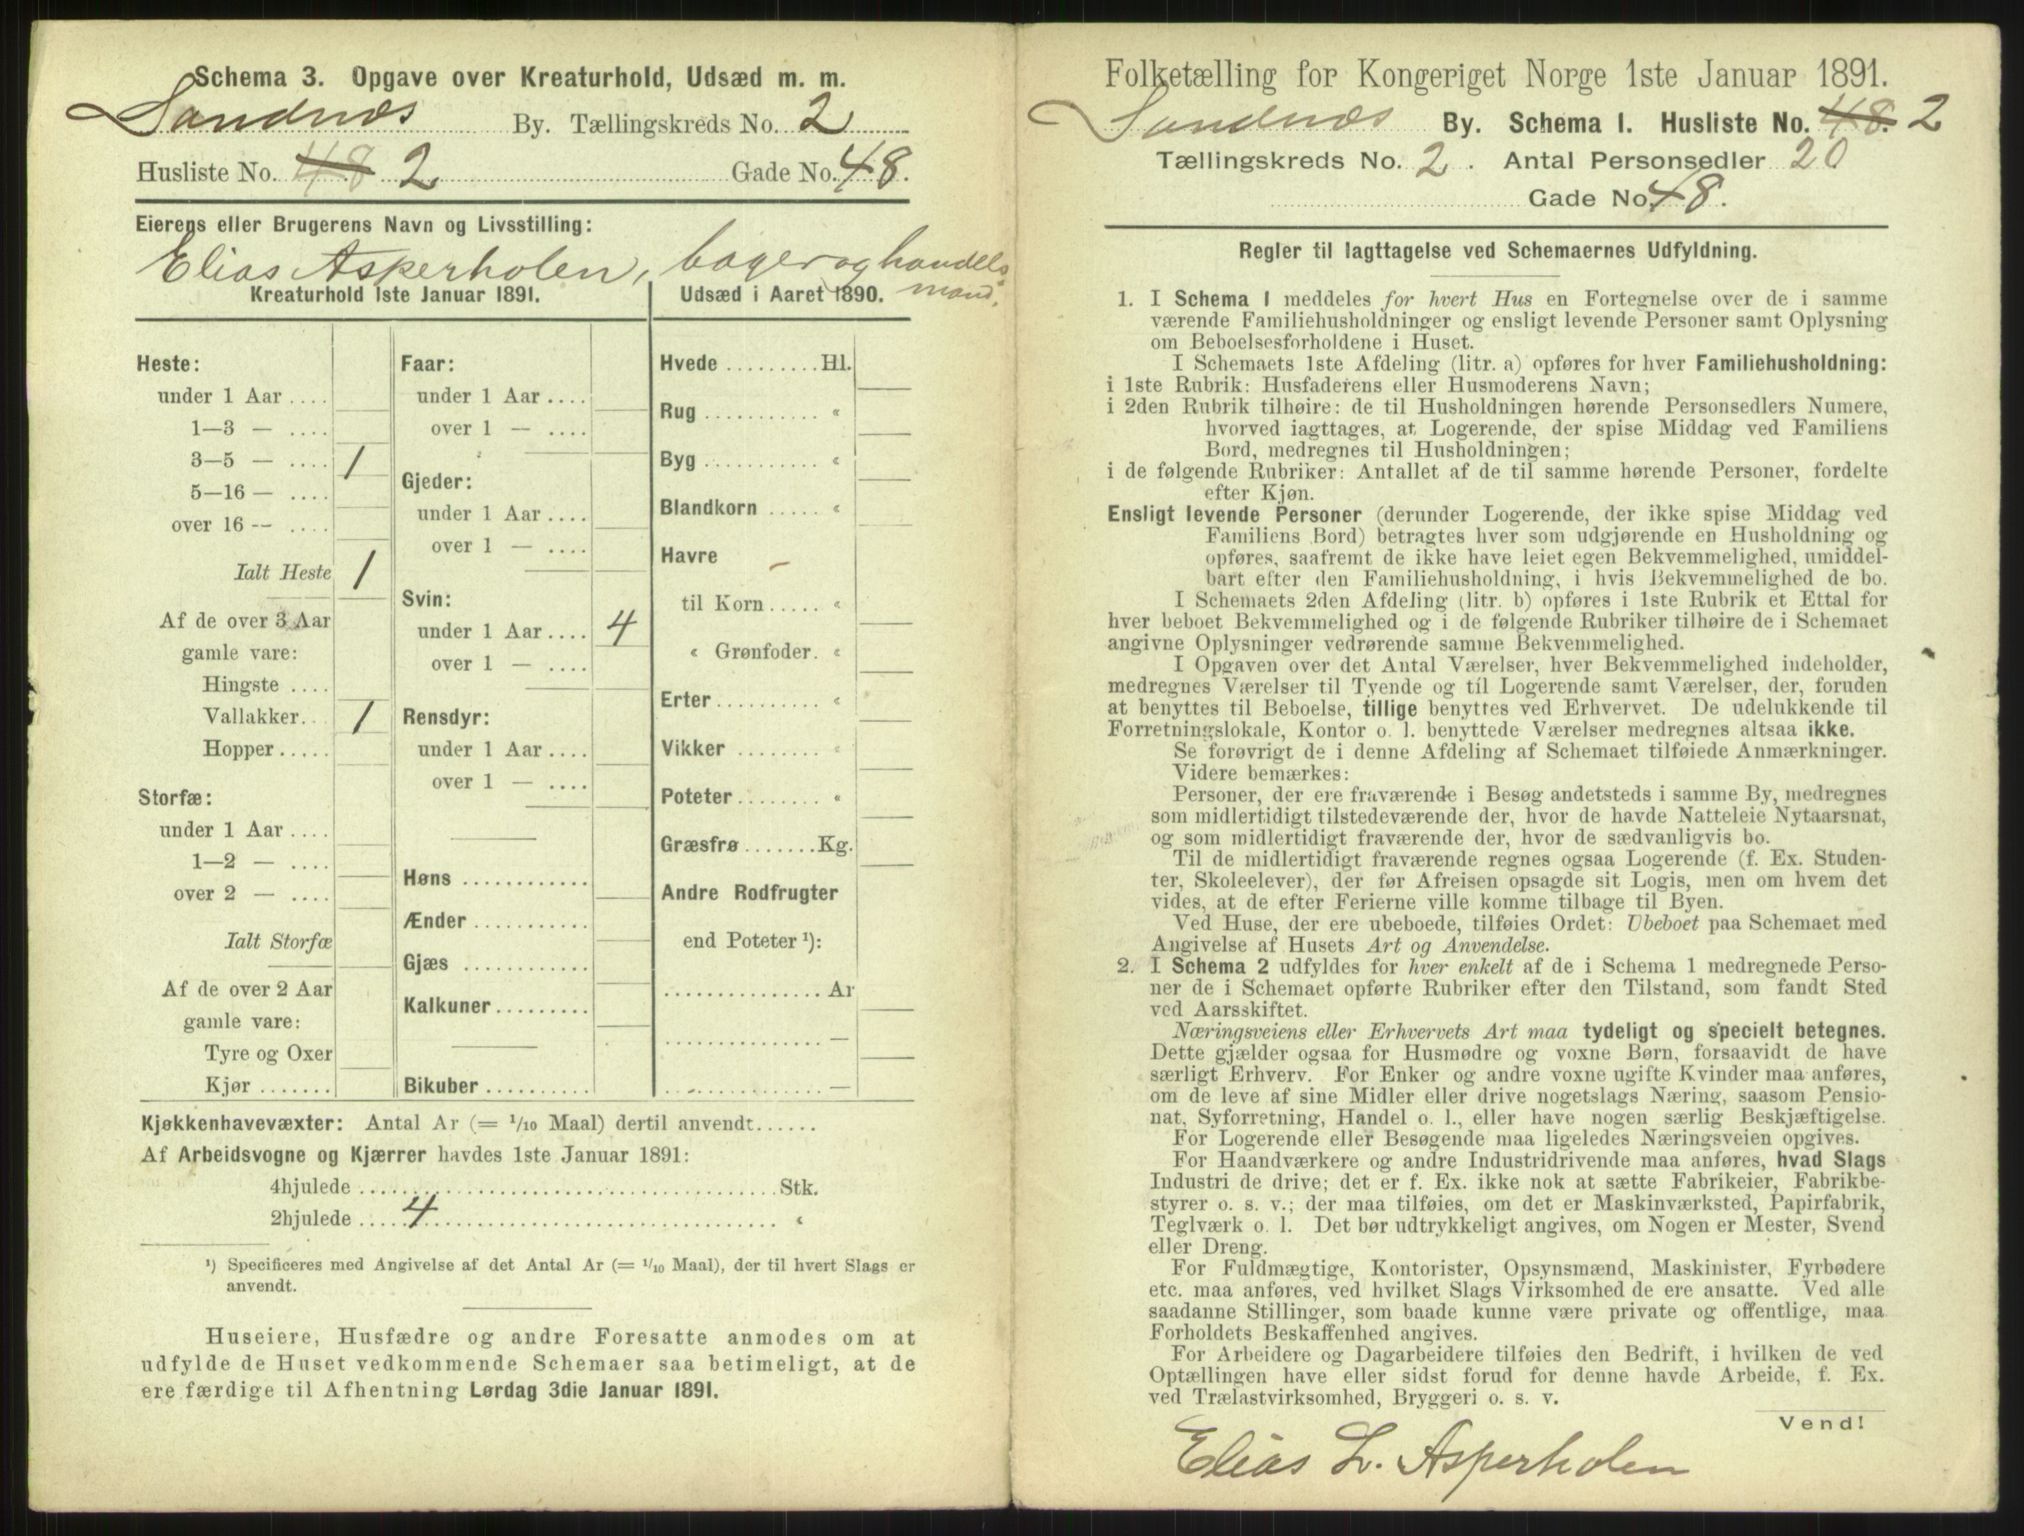 Schema 3. Opgave over Kreaturhold, Udsæd m. m.
Sandnæs By. Tællingskreds No. 2
Husliste No. 48 2 Gade No. 48.
Eierens eller Brugerens Navn og Livsstilling:
Elias Asperholen, bager og handels
mand.
Kreaturhold 1ste Januar 1891.
Heste:
under 1 Aar ....
1—3 — ....
3—5 — .... 1
5—16 — ....
over 16 -- ....
Ialt Heste 1
Af de over 3 Aar
gamle vare:
Hingste ....
Vallakker.. 1
Hopper.....
Storfæ:
under 1 Aar ....
1—2 — ....
over 2 — ....
Ialt Storfæ
Af de over 2 Aar
gamle vare:
Tyre og Oxer
Kjør .......
Faar:
under 1 Aar ....
over 1 — ....
Gjeder:
under 1 Aar ....
over 1 — ....
Svin:
under 1 Aar .... 4
over 1 — ....
Rensdyr:
under 1 Aar ....
over 1 — ....
Høns ............
Ænder ...........
Gjæs ............
Kalkuner.........
Bikuber ..........
Udsæd i Aaret 1890.
Hvede ......... Hl.
Rug ........... «
Byg ........... «
Blandkorn ..... «
Havre
til Korn ..... «
« Grønfoder. «
Erter .......... «
Vikker ........ «
Poteter ........ «
Græsfrø ....... Kg.
Andre Rodfrugter
end Poteter ¹):
............... Ar
............... —
............... —
Kjøkkenhavevæxter: Antal Ar (= 1/10 Maal) dertil anvendt......
Af Arbeidsvogne og Kjærrer havdes 1ste Januar 1891:
4hjulede ........................ Stk.
2hjulede ..... 4 ................ «
¹) Specificeres med Angivelse af det Antal Ar (= 1/10 Maal), der til hvert Slags er
anvendt.
Huseiere, Husfædre og andre Foresatte anmodes om at
udfylde de Huset vedkommende Schemaer saa betimeligt, at de
ere færdige til Afhentning Lørdag 3die Januar 1891.
Folketælling for Kongeriget Norge 1ste Januar 1891.
Sandnæs By. Schema I. Husliste No. 48. 2
Tællingskreds No. 2. Antal Personsedler 20
Gade No. 48.
Regler til Iagttagelse ved Schemaernes Udfyldning.
1. I Schema 1 meddeles for hvert Hus en Fortegnelse over de i samme
værende Familiehusholdninger og ensligt levende Personer samt Oplysning
om Beboelsesforholdene i Huset.
I Schemaets 1ste Afdeling (litr. a) opføres for hver Familiehusholdning:
i 1ste Rubrik: Husfaderens eller Husmoderens Navn;
i 2den Rubrik tilhøire: de til Husholdningen hørende Personsedlers Numere,
hvorved iagttages, at Logerende, der spise Middag ved Familiens
Bord, medregnes til Husholdningen;
i de følgende Rubriker: Antallet af de til samme hørende Personer, fordelte
efter Kjøn.
Ensligt levende Personer (derunder Logerende, der ikke spise Middag ved
Familiens Bord) betragtes hver som udgjørende en Husholdning og
opføres, saafremt de ikke have leiet egen Bekvemmelighed, umiddel-
bart efter den Familiehusholdning, i hvis Bekvemmelighed de bo.
I Schemaets 2den Afdeling (litr. b) opføres i 1ste Rubrik et Ettal for
hver beboet Bekvemmelighed og i de følgende Rubriker tilhøire de i Schemaet
angivne Oplysninger vedrørende samme Bekvemmelighed.
I Opgaven over det Antal Værelser, hver Bekvemmelighed indeholder,
medregnes Værelser til Tyende og til Logerende samt Værelser, der, foruden
at benyttes til Beboelse, tillige benyttes ved Erhvervet. De udelukkende til
Forretningslokale, Kontor o. l. benyttede Værelser medregnes altsaa ikke.
Se forøvrigt de i denne Afdeling af Schemaet tilføiede Anmærkninger.
Videre bemærkes:
Personer, der ere fraværende i Besøg andetsteds i samme By, medregnes
som midlertidigt tilstedeværende der, hvor de havde Natteleie Nytaarsnat,
og som midlertidigt fraværende der, hvor de sædvanligvis bo.
Til de midlertidigt fraværende regnes ogsaa Logerende (f. Ex. Studen-
ter, Skoleelever), der før Afreisen opsagde sit Logis, men om hvem det
vides, at de efter Ferierne ville komme tilbage til Byen.
Ved Huse, der ere ubeboede, tilføies Ordet: Ubeboet paa Schemaet med
Angivelse af Husets Art og Anvendelse.
2. I Schema 2 udfyldes for hver enkelt af de i Schema 1 medregnede Perso-
ner de i Schemaet opførte Rubriker efter den Tilstand, som fandt Sted
ved Aarsskiftet.
Næringsveiens eller Erhvervets Art maa tydeligt og specielt betegnes.
Dette gjælder ogsaa for Husmødre og voxne Børn, forsaavidt de have
særligt Erhverv. For Enker og andre voxne ugifte Kvinder maa anføres,
om de leve af sine Midler eller drive nogetslags Næring, saasom Pensio-
nat, Syforretning, Handel o. l., eller have nogen særlig Beskjæftigelse.
For Logerende eller Besøgende maa ligeledes Næringsveien opgives.
For Haandværkere og andre Industridrivende maa anføres, hvad Slags
Industri de drive; det er f. Ex. ikke nok at sætte Fabrikeier, Fabrikbe-
styrer o. s. v.; der maa tilføies, om det er Maskinværksted, Papirfabrik,
Teglværk o. l. Det bør udtrykkeligt angives, om Nogen er Mester, Svend
eller Dreng.
For Fuldmægtige, Kontorister, Opsynsmænd, Maskinister, Fyrbødere
etc. maa anføres, ved hvilket Slags Virksomhed de ere ansatte. Ved alle
saadanne Stillinger, som baade kunne være private og offentlige, maa
Forholdets Beskaffenhed angives.
For Arbeidere og Dagarbeidere tilføies den Bedrift, i hvilken de ved
Optællingen have eller sidst forud for denne havde Arbeide, f. Ex.
ved Trælastvirksomhed, Bryggeri o. s. v.
Vend!
Elias L. Asperholen